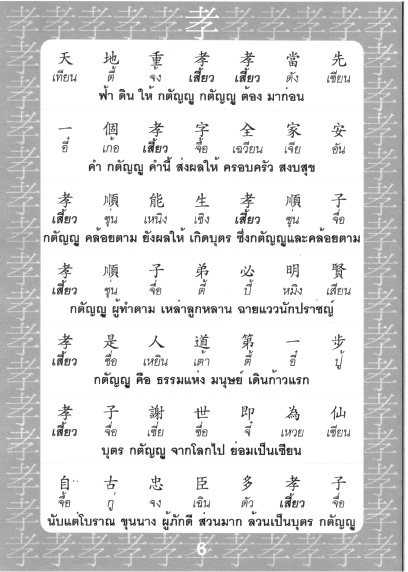 孝
天 地 重 孝 孝 當 先
เทียน ตี้ จ้ง เสี้ยว เสี้ยว ตัง เซียน
ฟ้า ดิน ให้ กตัญญู กตัญญู ต้อง มาก่อน
一 個 孝 字 全 家 安
อี่ เก้อ เสี้ยว จื้อ เฉวียน เจีย อัน
คำ กตัญญู คำนี้ ส่งผลให้ ครอบครัว สงบสุข
孝 順 能 生 孝 順 子
เสี้ยว ซุ่น เหนิง เซิง เสี้ยว ซุ่น จื่อ
กตัญญู คล้อยตาม ยังผลให้ เกิดบุตร ซึ่งกตัญญูและคล้อยตาม
孝 順 子 弟 必 明 賢
เสี้ยว ซุ่น จื่อ ตี้ ปี้ หมิง เสียน
กตัญญู ผู้ทำตาม เหล่าลูกหลาน ฉายแววนักปราชญ์
孝 是 人 道 第 一 步
เสี้ยว ซื่อ เหยิน เต้า ตี้ อี่ ปู้
กตัญญู คือ ธรรมแห่ง มนุษย์ เดินก้าวแรก
孝 子 謝 世 即 為 仙
เสี้ยว จื่อ เซี่ย ซื่อ จี๋ เหวย เซียน
บุตร กตัญญู จากโลกไป ย่อมเป็นเซียน
自 古 忠 臣 多 孝 子
จื้อ กู่ จง เฉิน ตัว เสี้ยว จื่อ
นับแต่โบราณ ขุนนาง ผู้ภักดี ส่วนมาก ล้วนเป็นบุตร กตัญญู
6